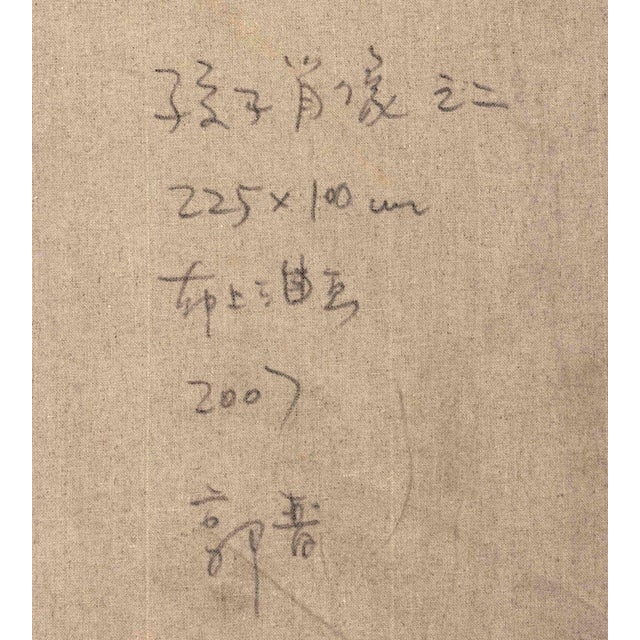 孩子肖像之二
225×100 cm
布上油画
2007
郭晋